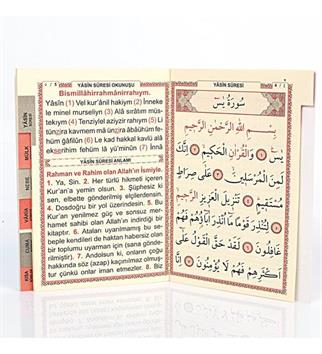 YÂSİN SÛRESİ OKUNUŞU
Bismillâhirrahmânirrahıym.
Yâsîn (1) Vel kur'ânil hakiym (2) İnneke
le minel murseliyn (3) Alâ sıratın müstekiym
(4) Tenziylel aziyzir rahıym (5) Li
tünzira kavmem mâ ünzira âbâühüm fe-
hüm ğâfilûn (6) Le kad hakkal kavlü alâ
ekserihim fehüm lâ yü'minûn (7) İnnâ
YÂSİN SÛRESİ ANLAMI
Rahman ve Rahim olan Allah'ın İsmiyle.
1. Ya, Sin. 2. Her türlü hikmeti içeren
Kur'an'a yemin olsun. 3. Şüphesiz ki
sen, elbette gönderilmiş elçilerdensin.
4. Dosdoğru bir yol üzerindesin. 5. Bu
Kur'an yenilmez güç ve sonsuz mer-
hamet sahibi olan Allah'ın indirdiği bir
kitaptır. 6. Ataları uyarılmamış bu se-
beple kendileri de haktan habersiz olan
bir toplumu uyarman için (sana gönde-
rilmiştir). 7. Andolsun ki, onların çoğu
hakkında söz (azap) kaçınılmaz olmuş-
tur çünkü onlar iman etmezler. 8. Biz
YÂSİN
MÜLK
NEBE
VAKIA
CUMA
KISA
YÂSİN SÛRESİ
سُورَةُ يٰسٓ
بِسْمِ اللهِ الرَّحْمٰنِ الرَّحِيمِ
يٰسٓ ﴿١﴾ وَالْقُرْاٰنِ الْحَكِيمِ ﴿٢﴾ اِنَّكَ
لَمِنَ الْمُرْسَلِينَ ﴿٣﴾ عَلٰى صِرَاطٍ
مُسْتَقِيمٍ ﴿٤﴾ تَنْزِيلَ الْعَزِيزِ الرَّحِيمِ
﴿٥﴾ لِتُنْذِرَ قَوْمًا مَا اُنْذِرَ اٰبَاؤُهُمْ فَهُمْ
غَافِلُونَ ﴿٦﴾ لَقَدْ حَقَّ الْقَوْلُ عَلٰى
اَكْثَرِهِمْ فَهُمْ لَا يُؤْمِنُونَ ﴿٧﴾ اِنَّا